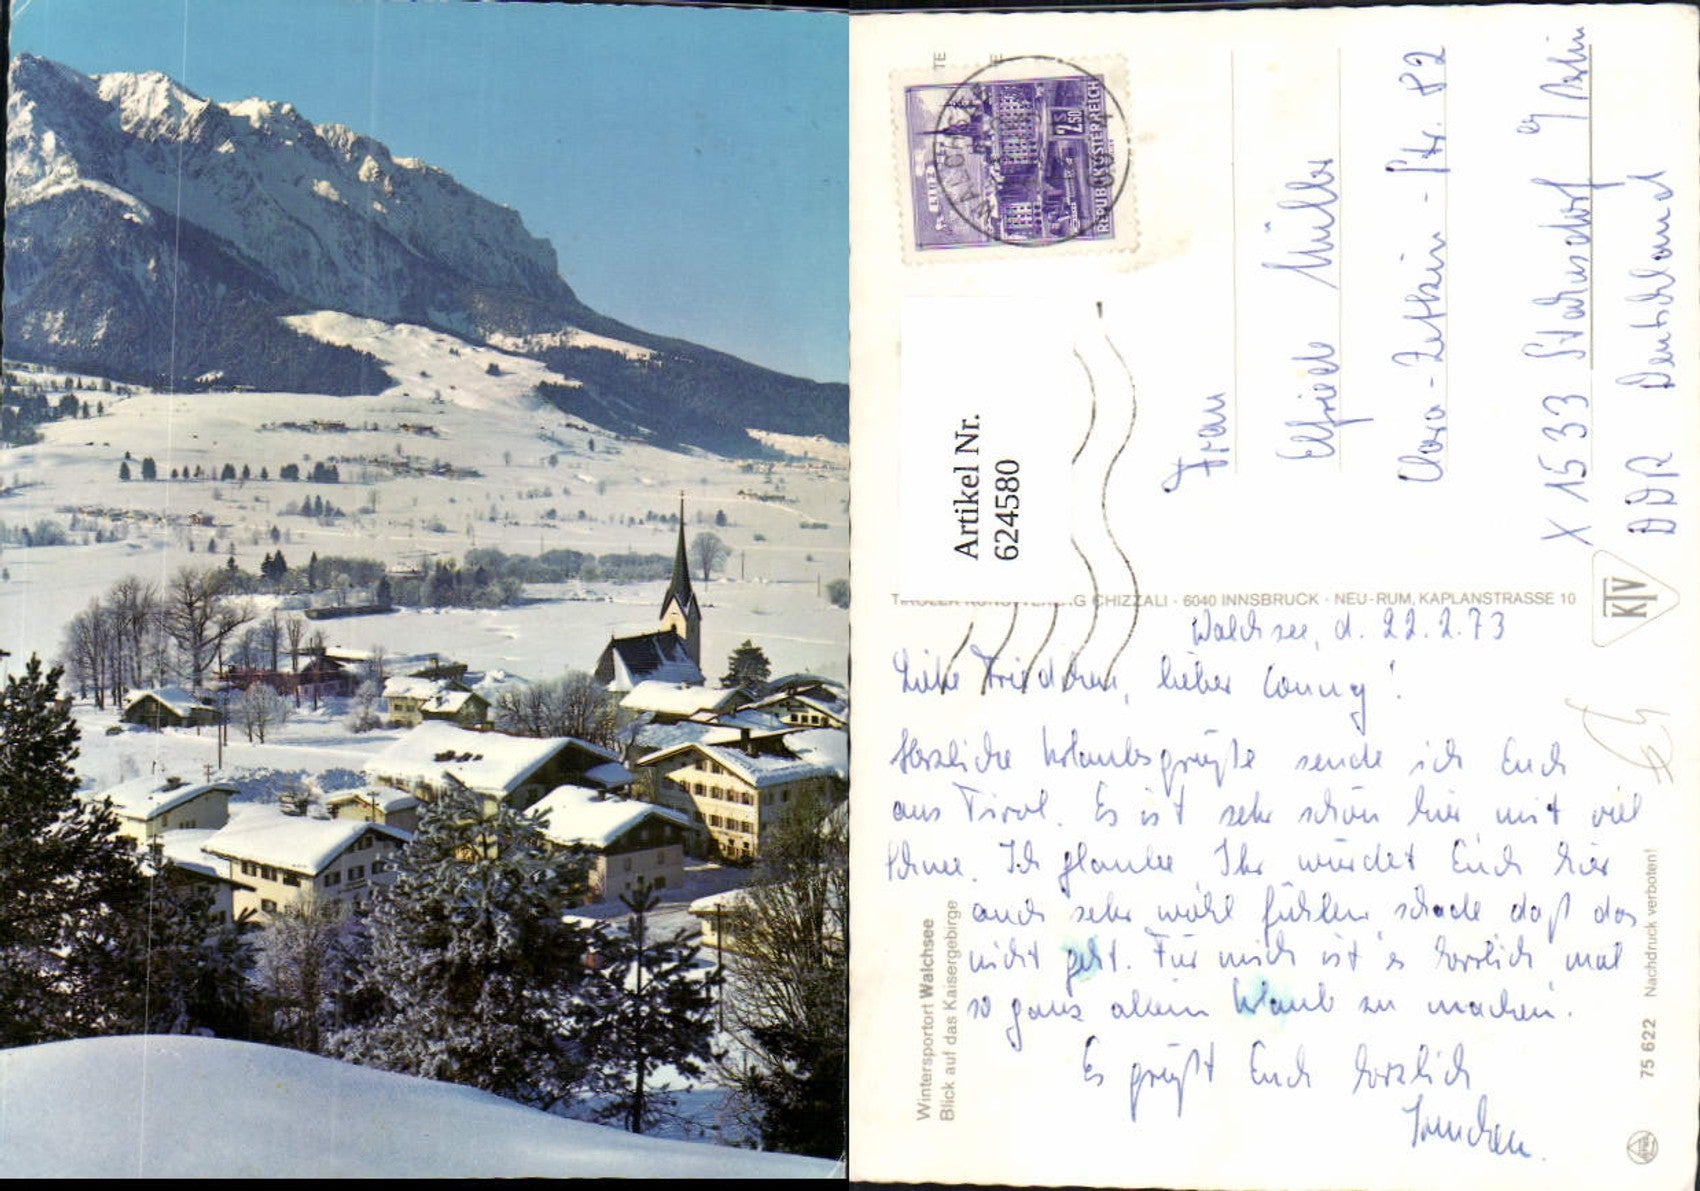 LINZ
REPUBLIK ÖSTERREICH
S 2.50
WALCHSEE
Artikel Nr.
624580
Frau
Elfriede Müller
Clara-Zetkin-Str. 82
X 1533 Stahnsdorf
DDR Deutschland
CHIZZALI · 6040 INNSBRUCK · NEU-RUM, KAPLANSTRASSE 10
KTV
Walchsee, d. 22.2.73
Liebe Friedchen, lieber Conny!
Herzliche Urlaubsgrüße sende ich Euch
aus Tirol. Es ist sehr schön hier mit viel
Schnee. Ich glaube Ihr würdet Euch hier
auch sehr wohl fühlen, schade daß das
nicht geht. Für mich ist es herrlich mal
so ganz allein Urlaub zu machen.
Es grüßt Euch herzlich
Wintersportort Walchsee
Blick auf das Kaisergebirge
75 622 Nachdruck verboten!